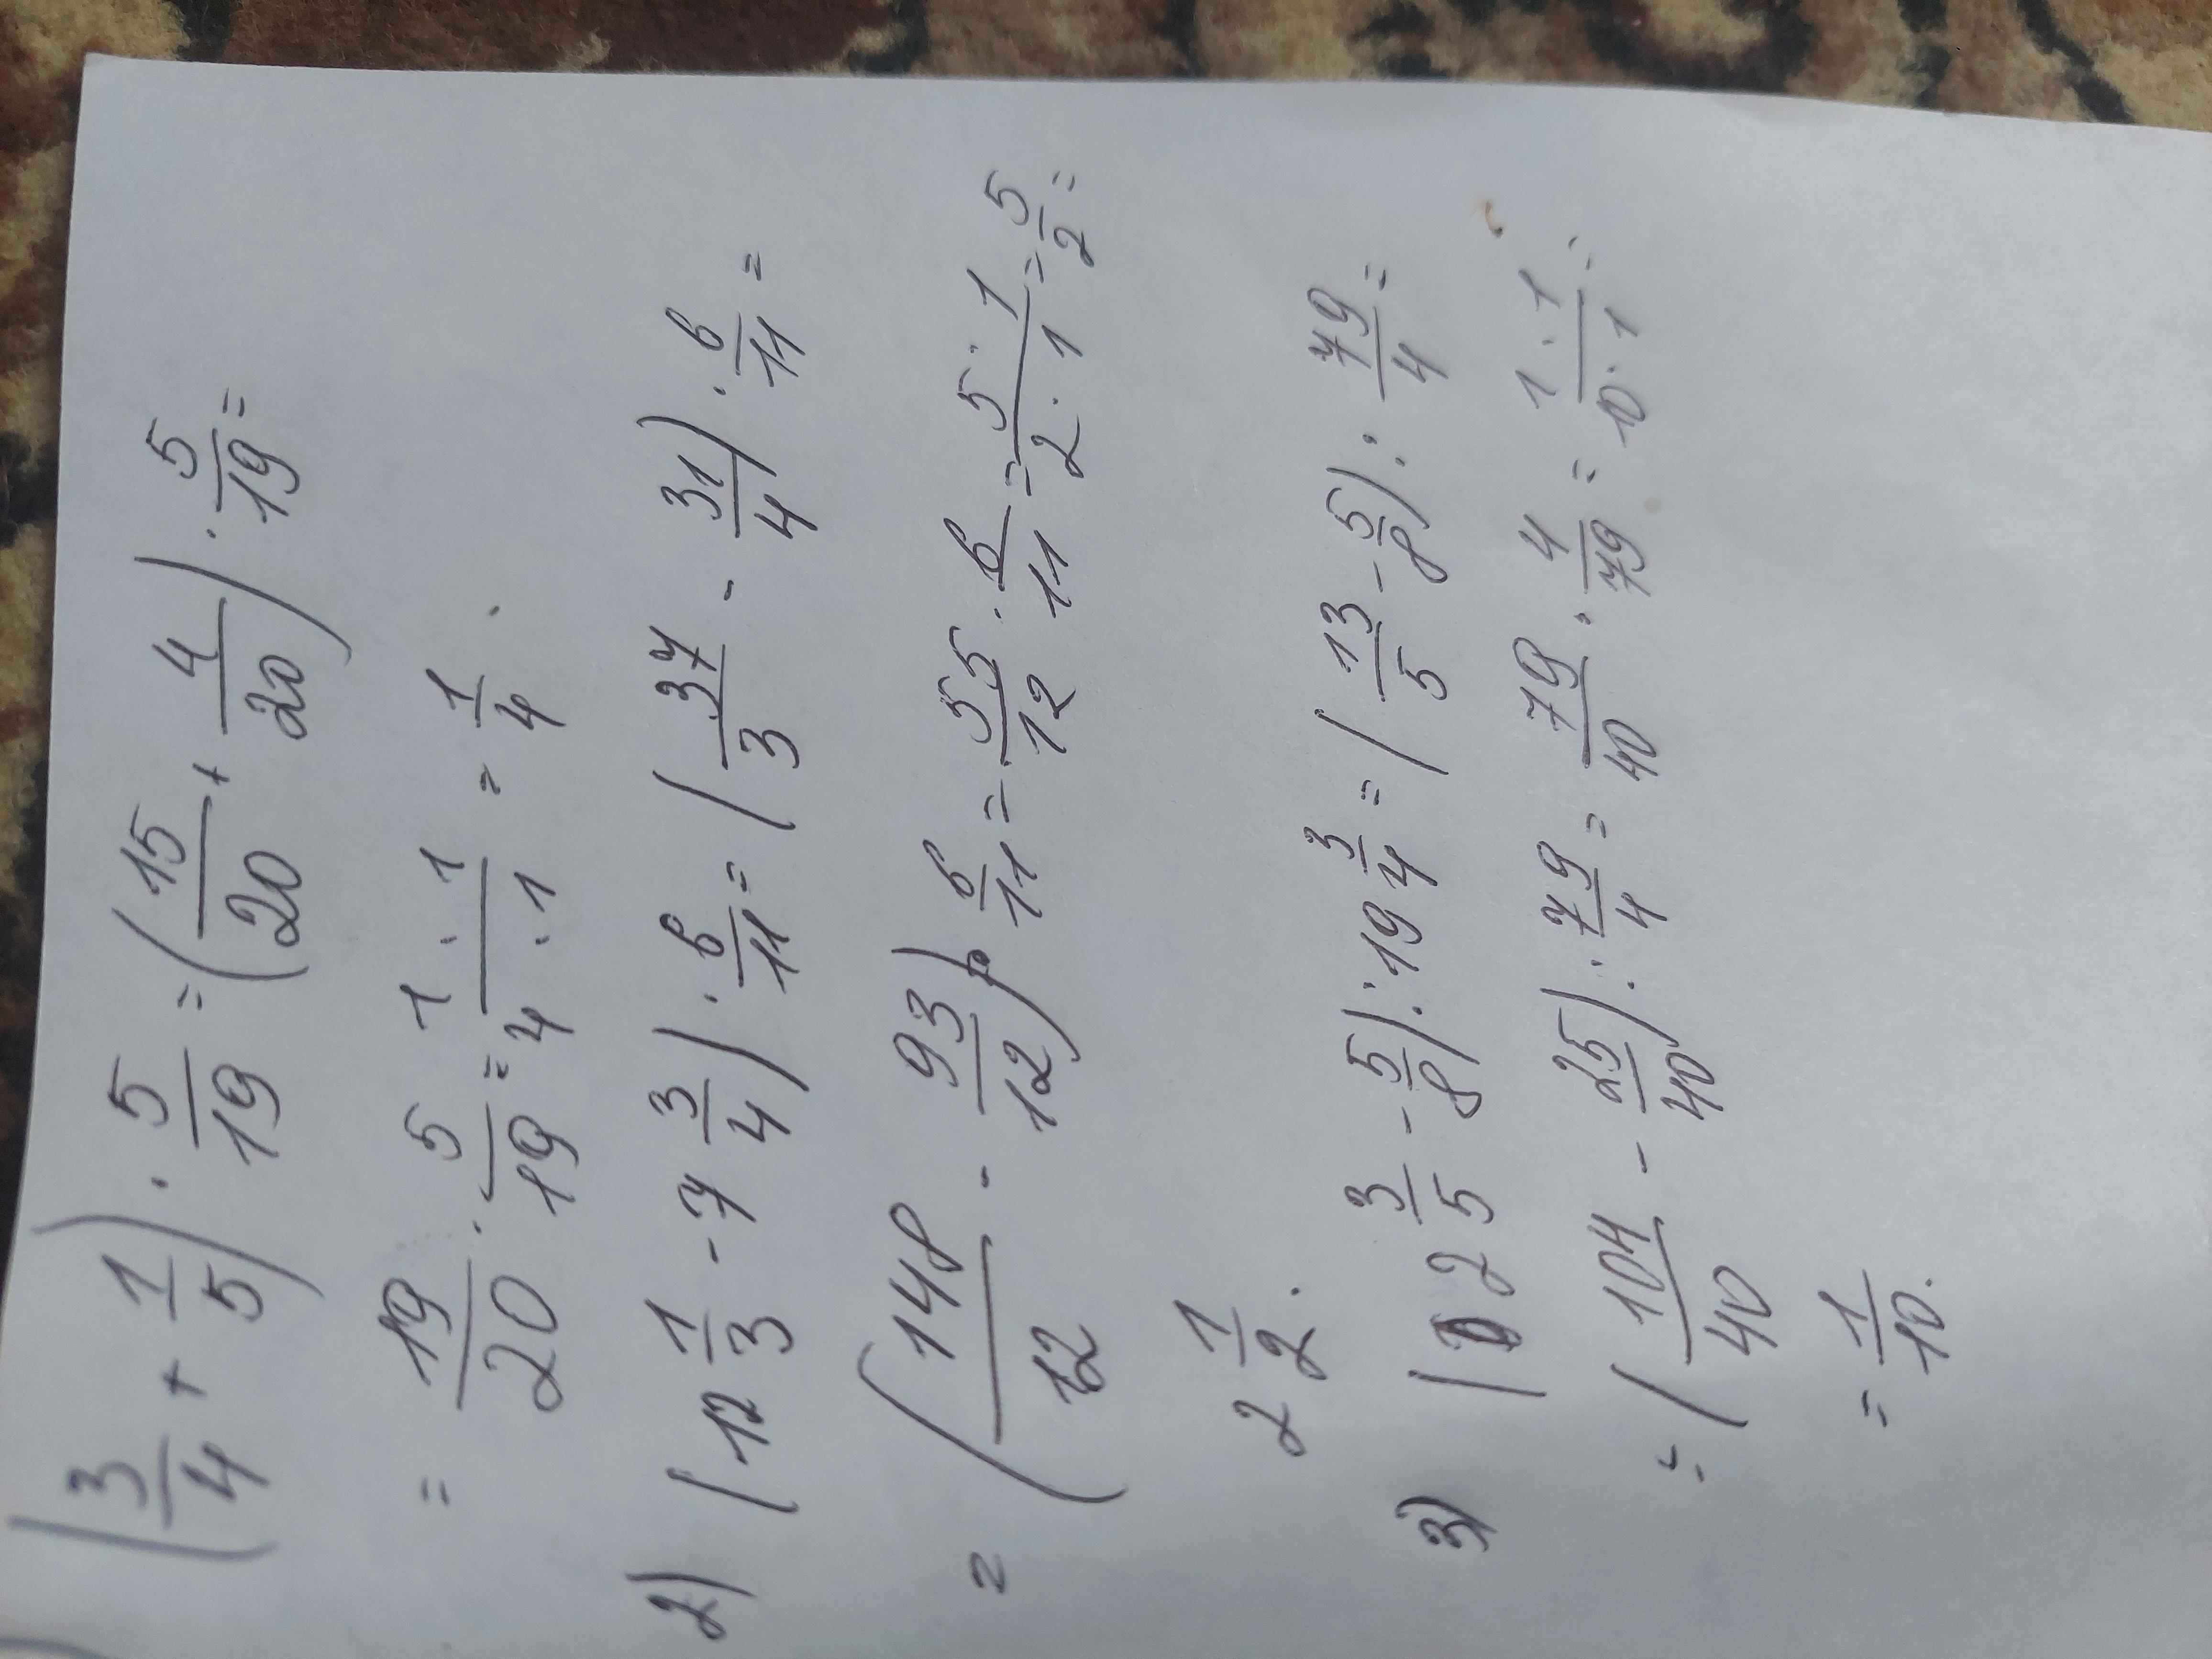 (3/4 + 1/5) · 5/19 = (15/20 + 4/20) · 5/19 =
= 19/20 · 5/19 = 1 · 1/4 · 1 = 1/4
2) (12 1/3 - 7 3/4) · 6/11 = (37/3 - 31/4) · 6/11 =
= (148/12 - 93/12) · 6/11 = 55/12 · 6/11 = 5 · 1/2 · 1 = 5/2 =
2 1/2.
3) (2 3/5 - 5/8) : 19 3/4 = (13/5 - 5/8) : 79/4 =
= (104/40 - 25/40) : 79/4 = 79/40 · 4/79 = 1 · 1/10 · 1 =
= 1/10.